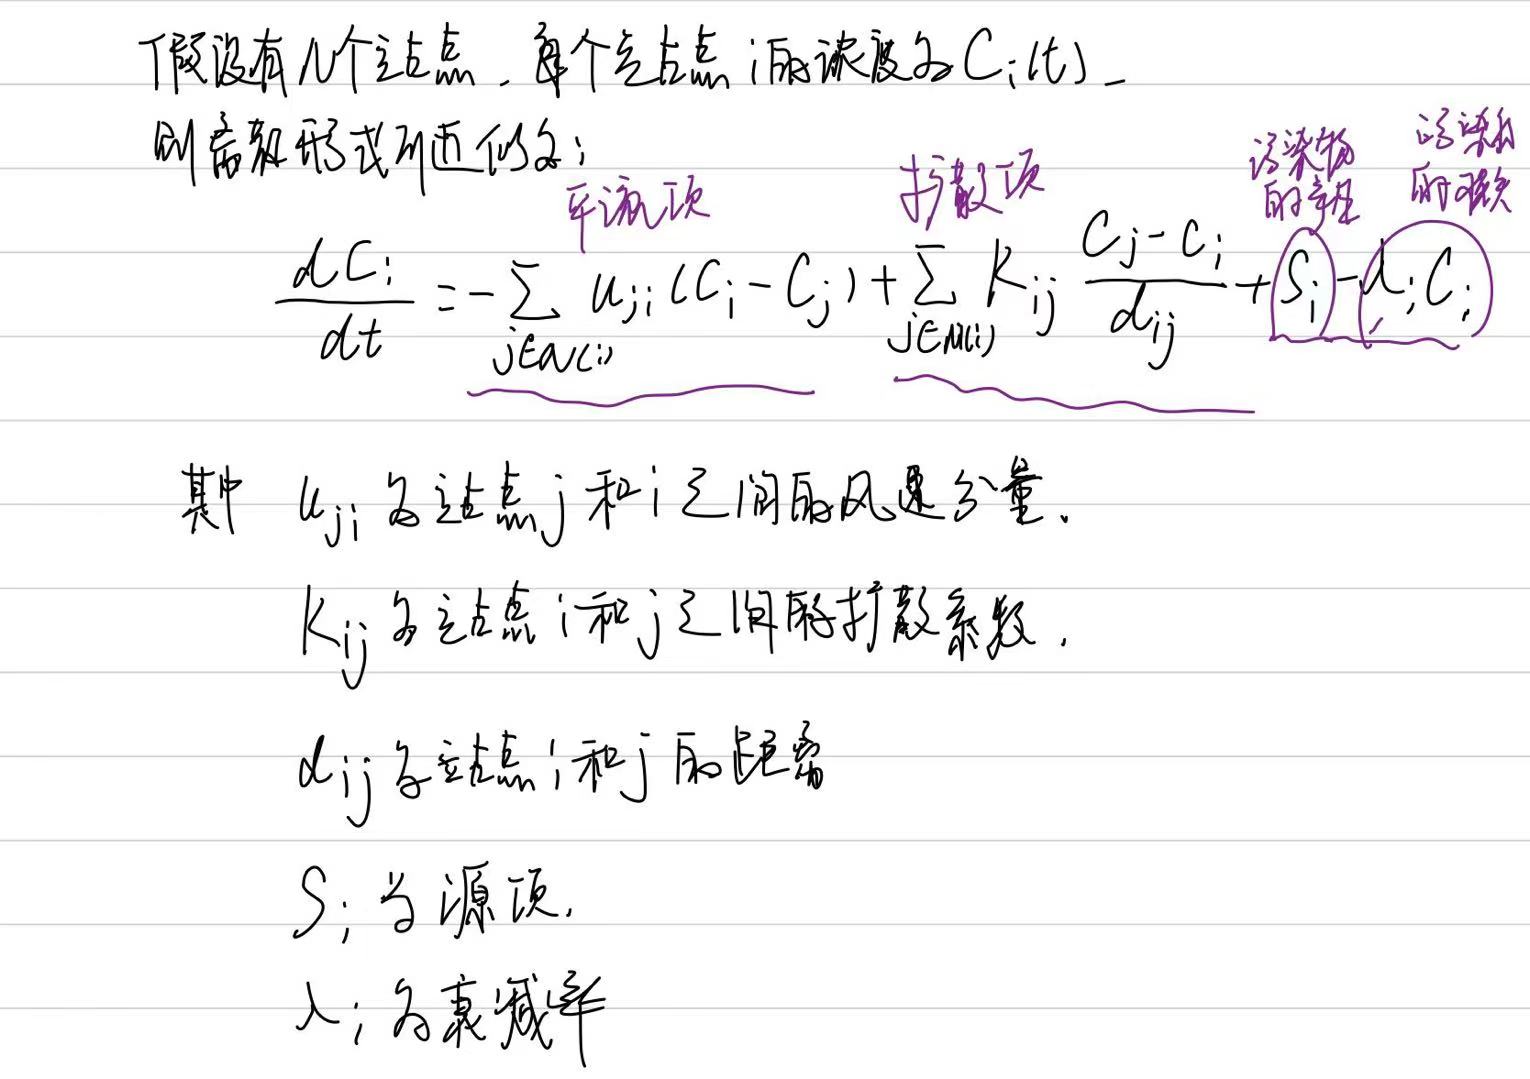 假设有N个站点，每个站点i的浓度为Cᵢ(t)．
则离散形式可近似为：
平流项 扩散项 污染物的产生 污染物的损失
dCᵢ/dt = -∑_{j∈N(i)} uⱼᵢ(Cᵢ - Cⱼ) + ∑_{j∈N(i)} Kᵢⱼ (Cⱼ - Cᵢ)/dᵢⱼ + Sᵢ - λᵢCᵢ
其中 uⱼᵢ 为站点j和i之间的风速分量．
Kᵢⱼ 为站点i和j之间的扩散系数．
dᵢⱼ 为站点i和j的距离
Sᵢ 为源项．
λᵢ 为衰减率